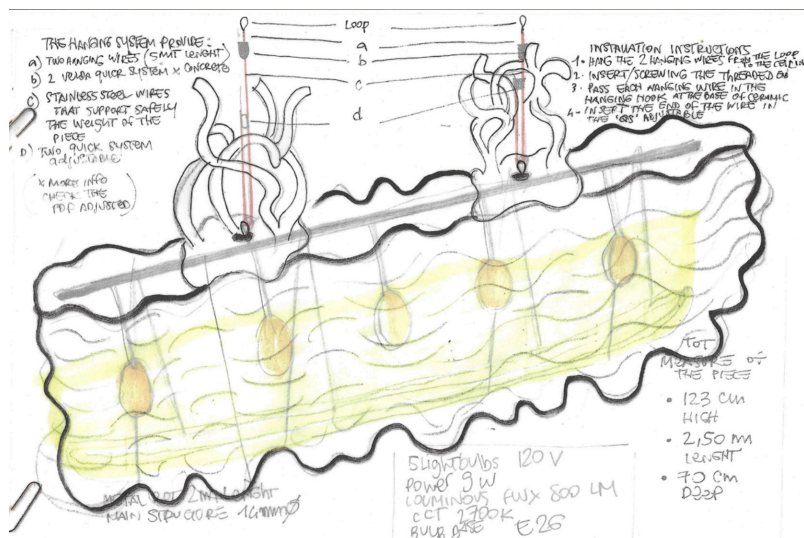 THE HANGING SYSTEM PROVIDE:
a) TWO HANGING WIRES (5MT LENGHT)
b) 2 VELDA QUICK SYSTEM X CONCRETE
C) STAINLESS STEEL WIRES
THAT SUPPORT SAFELLY
THE WEIGHT OF THE
PIECE
D) TWO QUICK SYSTEM
adjustable
(x MORE INFO
CHECK THE
PDF ADJUSTED)
LOOP
a
b
c
d
INSTALLATION INSTRUCTIONS
1- HANG THE 2 HANGING WIRES FROM THE LOOP
TO THE CEILING
2- INSERT/SCREWING THE THREADED END
3- PASS EACH HANGING WIRE IN THE
HANGING HOOK AT THE BASE OF CERAMIC
4- INSERT THE END OF THE WIRE IN
THE "QS" ADJUSTABLE
TOT
MEASURE OF
THE PIECE
• 123 cm
HIGH
• 2,50 m
LENGHT
• 70 cm
DEEP
METAL ROD 2m LENGHT
MAIN STRUCTURE 14mmø
5 LIGHTBULBS 120V
POWER 9W
LUMINOUS FLUX 800 LM
CCT 2700K
BULB BASE E26